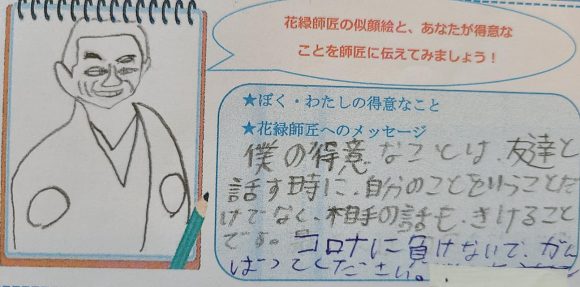 花緑師匠の似顔絵と、あなたが得意な
ことを師匠に伝えてみましょう！
★ぼく・わたしの得意なこと
★花緑師匠へのメッセージ
僕の得意なことは、友達と
話す時に、自分のことをいうことだ
けでなく、相手の話も、きけること
です。コロナに負けないで、がん
ばってください。